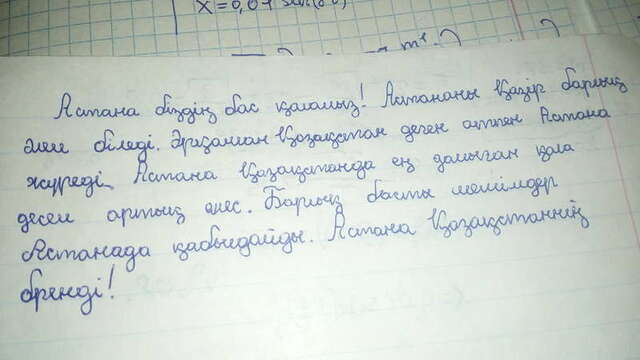 x=0,01 sin(
Астана біздің бас қаламыз! Астананы қазір барлық
әлем біледі. Әрқашан Қазақстан деген атпен Астана
жүреді. Астана Қазақстанда ең дамыған қала
десем артық емес. Барлық басты шешімдер
Астанада қабылдайды. Астана Қазақстанның
бренді!